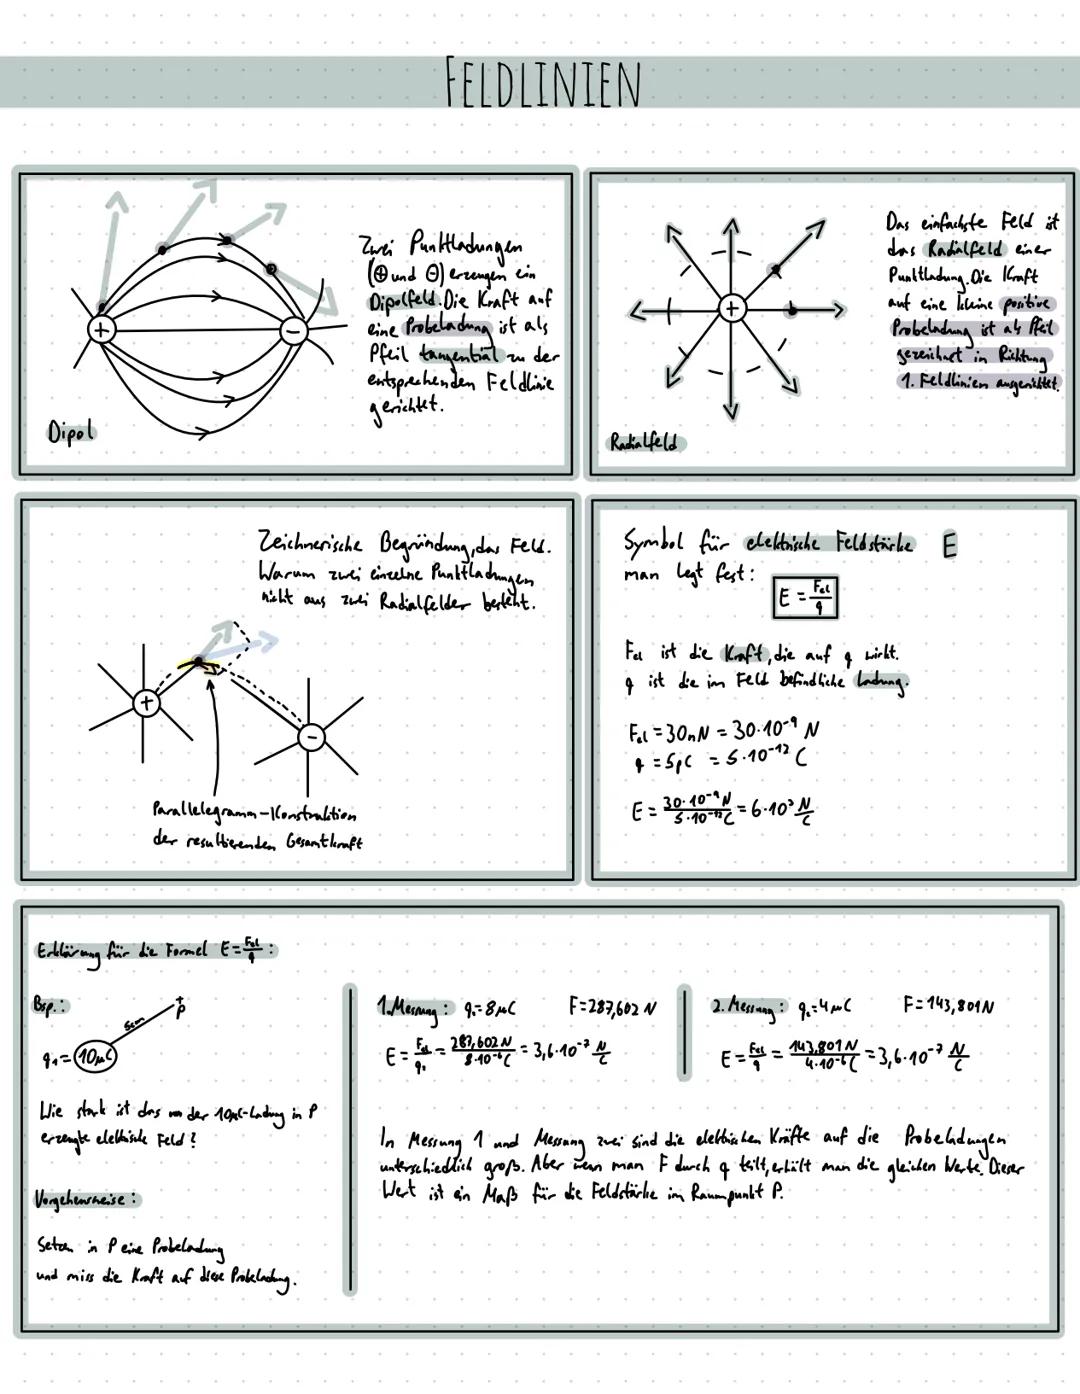 FELDLINIEN
Zwei Punktladungen
(⊕ und ⊖) erzeugen ein
Dipolfeld. Die Kraft auf
eine Probeladung ist als
Pfeil tangential zu der
entsprechenden Feldlinie
gerichtet.
+
−
Dipol
Das einfachste Feld ist
das Radialfeld einer
Punktladung. Die Kraft
auf eine kleine positive
Probeladung ist als Pfeil
gezeichnet in Richtung
1. Feldlinien ausgerichtet.
+
Radialfeld
Zeichnerische Begründung, das Feld.
Warum zwei einzelne Punktladungen
nicht aus zwei Radialfelder besteht.
+
-
Parallelegramm-Konstruktion
der resultierenden Gesamtkraft
Symbol für elektrische Feldstärke E
man legt fest:
E = Fel/q
Fel ist die Kraft, die auf q wirkt.
q ist die im Feld befindliche Ladung.
Fel = 30nN = 30·10⁻⁹ N
q = 5pC = 5·10⁻¹² C
E = 30·10⁻⁹N/5·10⁻¹²C = 6·10³ N/C
Erklärung für die Formel E = Fel/q :
Bsp.:
5cm
+
P
q₁ = 10µC
Wie stark ist das von der 10µC-Ladung in P
erzeugte elektrische Feld?
Vorgehensweise:
Setzen in P eine Probeladung
und miss die Kraft auf diese Probeladung.
1. Messung: q₀=8µC F=287,602 N
E = Fel/q₀ = 287,602 N/8·10⁻⁶C = 3,6·10⁻⁷ N/C
2. Messung: q₀=4µC F=143,801N
E = Fel/q = 143,801 N/4·10⁻⁶C = 3,6·10⁻⁷ N/C
In Messung 1 und Messung zwei sind die elektrischen Kräfte auf die Probeladungen
unterschiedlich groß. Aber wenn man F durch q teilt, erhält man die gleichen Werte. Dieser
Wert ist ein Maß für die Feldstärke im Raumpunkt P.